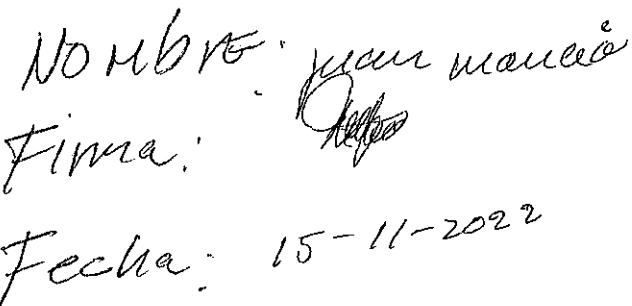 Nombre: juan
Firma:
Fecha: 15-11-2022